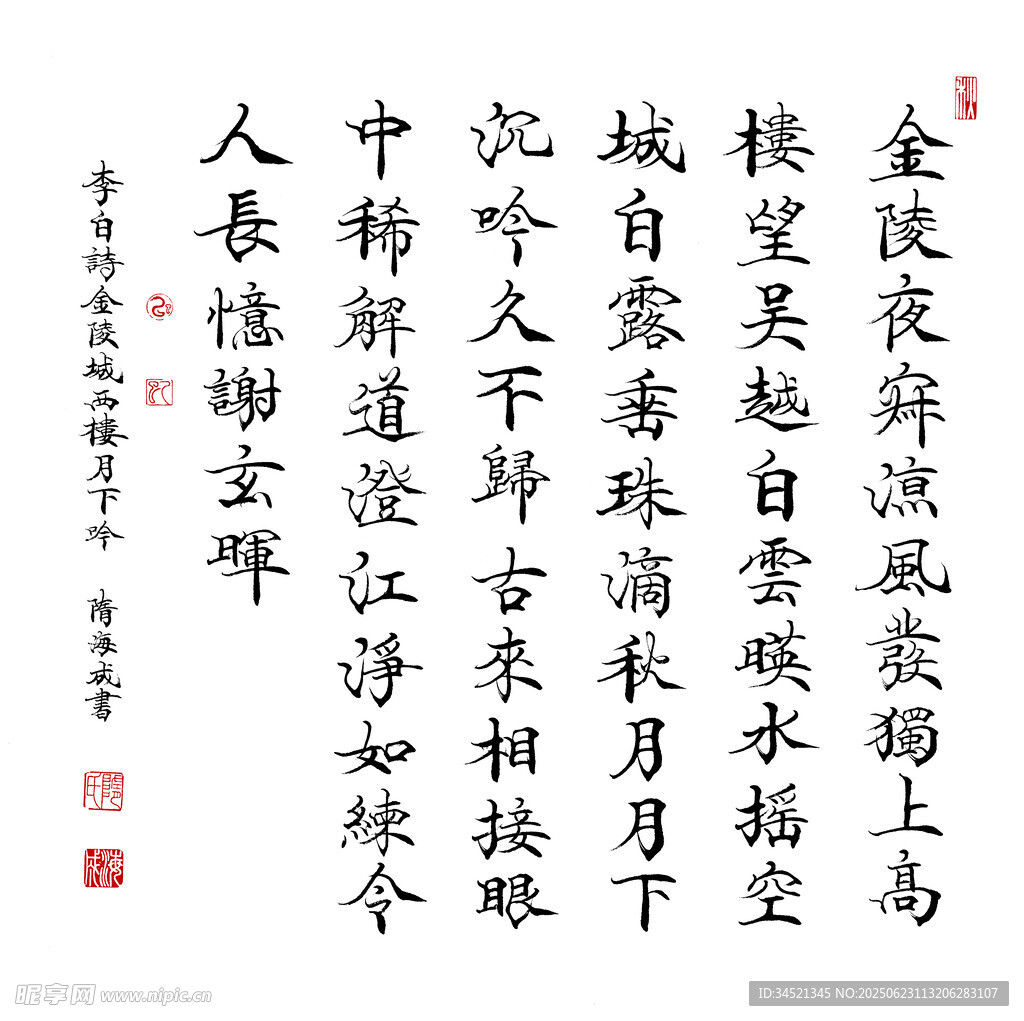 金陵夜寂涼風發獨上高
樓望吴越白雲暎水摇空
城白露垂珠滴秋月月下
沉吟久不歸古來相接眼
中稀解道澄江淨如練令
人長憶謝玄暉
李白詩金陵城西樓月下吟 隋海成書
昵享网 www.nipic.cn
ID:34521345 NO:20250623113206283107